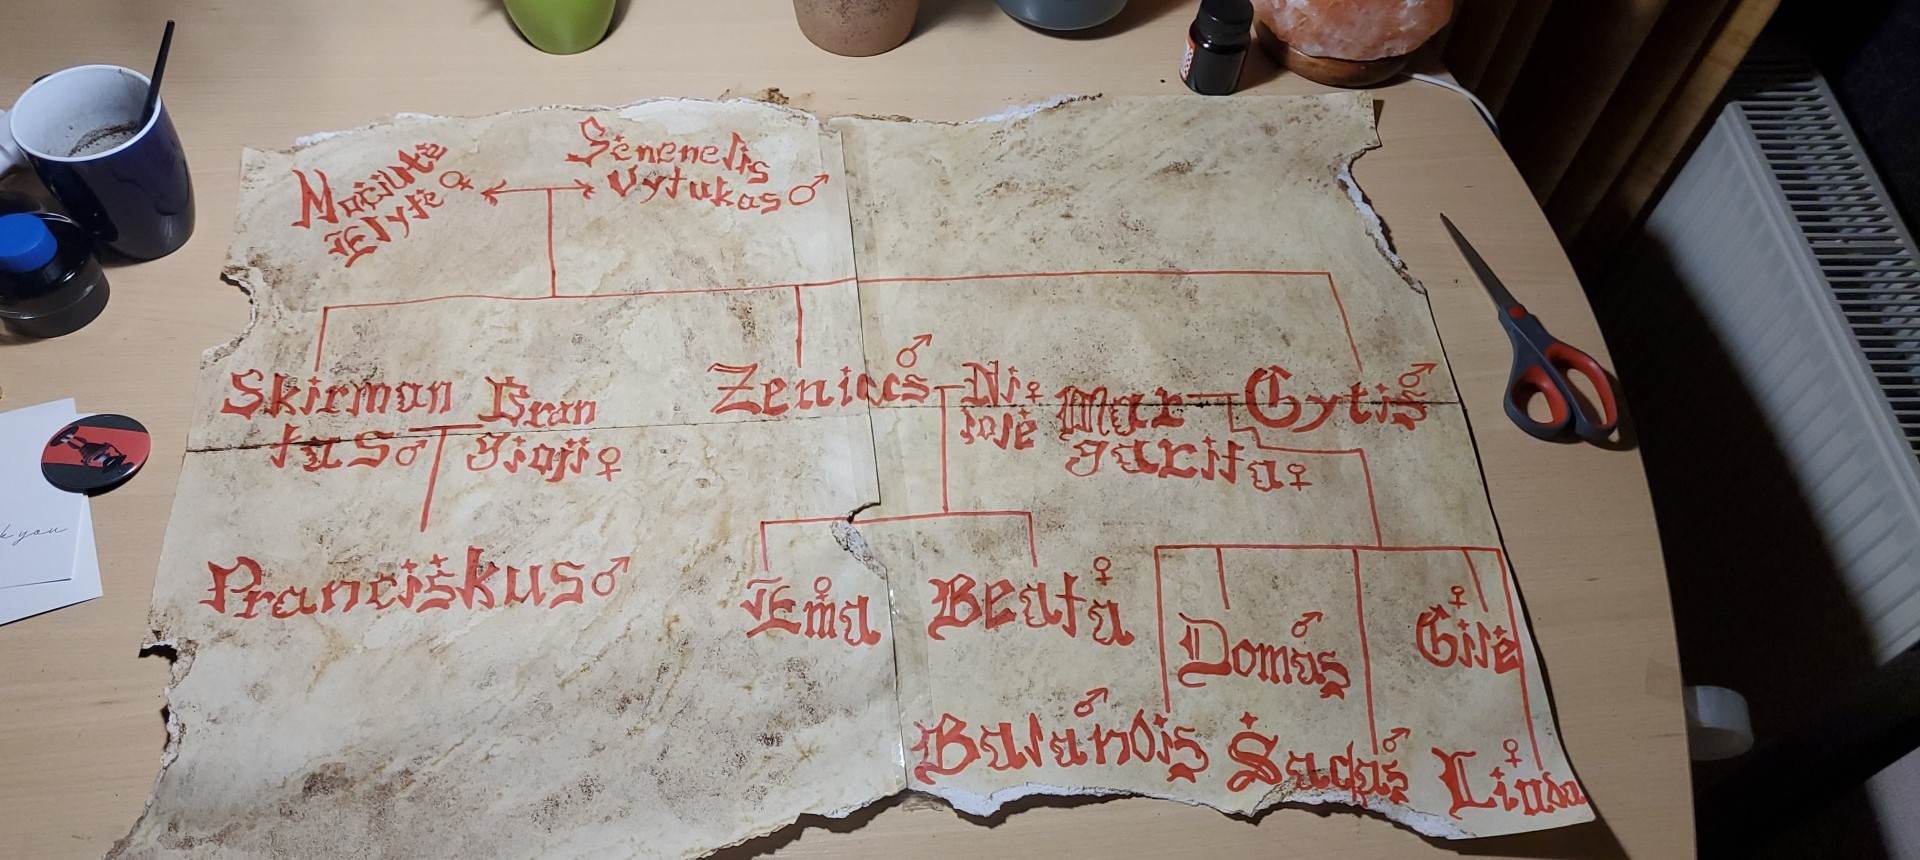 Močiutė
Elytė ♀
Senenelis
Vytukas ♂
Skirman
tas ♂
Bran
gioji ♀
Zenius ♂
Ni ♀
jolė
Mar
garita ♀
Gytis ♂
Pranciškus ♂
Ema ♀
Beata ♀
Domas ♂
Gilė ♀
Balandis ♂
Linda ♀
k you